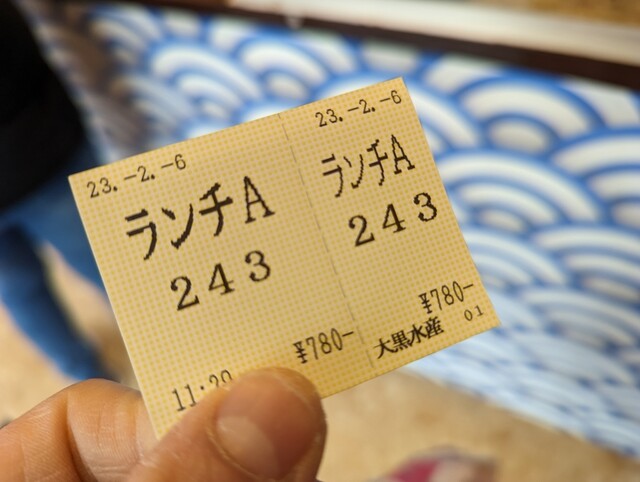 23.-2.-6
ランチA
243
¥780-
23.-2.-6
ランチA
243
¥780-
大黒水産 01